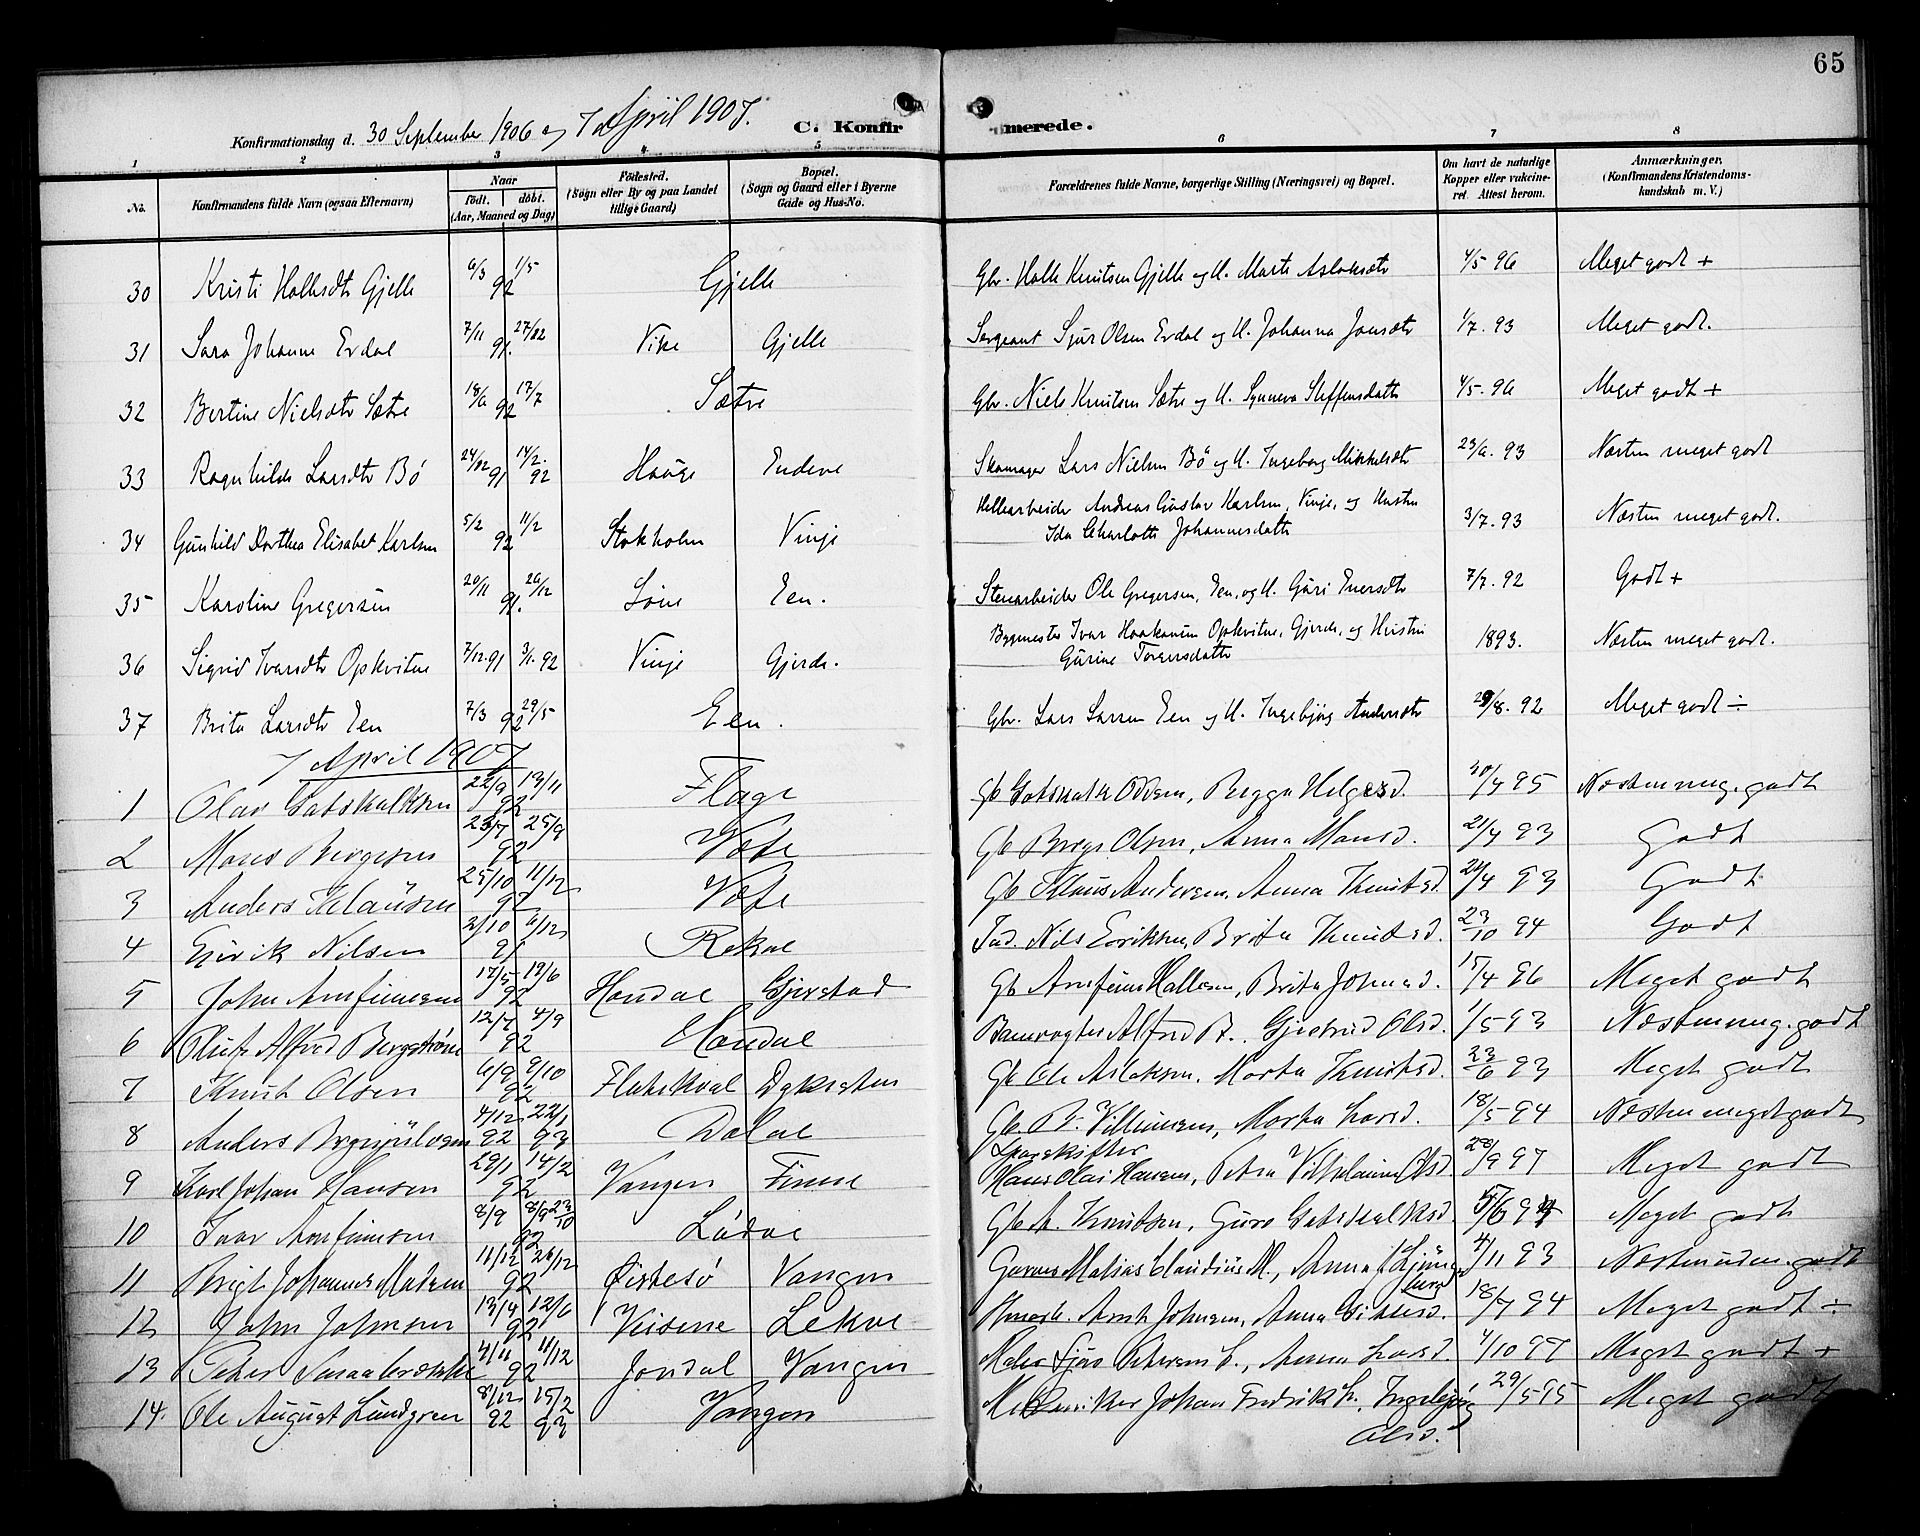 65
Konfirmationsdag d. 30 September 1906 og 7 April 1907. C. Konfirmerede.
1 2 3 4 5 6 7 8
No. Konfirmandens fulde Navn (ogsaa Efternavn) Naar født. døbt. (Aar, Maaned og Dag) Fødested. (Sogn eller By og paa Landet tillige Gaard) Bopæl. (Sogn og Gaard eller i Byerne Gade og Hus-No. Forældrenes fulde Navne, borgerlige Stilling (Næringsvei) og Bopæl. Om havt de naturlige Kopper eller vakcineret. Attest herom. Anmærkninger. (Konfirmandens Kristendomskundskab m. V.)
30 Kristi Hallesdtr Gjelle 6/3 1/5 92 Gjelle Gbr. Halle Knutsen Gjelle og H. Marta Aslaksdtr 4/5 96 Meget godt +
31 Sara Johanne Erdal 7/11 27/12 91. Vike Gjelle Sergeant Sjur Olsen Erdal og H. Johanna Jonsdtr 1/7. 93 Meget godt.
32 Bertine Nielsdtr Sætre 18/6 17/7 92 Sætre Gbr. Niels Knutsen Sætre og H. Synneva Steffensdatter 4/5. 96 Meget godt +
33 Ragnhilda Larsdtr Bö 24/12 91 14/2. 92 Hauge Endeve Skomager Lars Nielsen Bö og H. Ingeborg Mikkelsdtr 23/6. 93 Næsten meget godt
34 Gunhild Dorthea Elisabet Karlsen 5/2 11/2 92 Stokholm Vinje Hellearbeider Andreas Gustav Karlsen, Vinje, og Hustru
Ida Charlotte Johannesdatter 3/7. 93 Næsten meget godt.
35 Karoline Gregersen 20/11 26/12 91. Løne Een. Stenarbeider Ole Gregersen, Een, og H. Guri Iversdtr 7/7. 92 Godt +
36 Sigrid Ivarsdtr Opkvitne 7/12. 91 3/1. 92 Vinje Gjerde. Bygmester Ivar Haakonsen Opkvitne, Gjerde, og Hustru
Gurine Torgersdatter 1893. Næsten meget godt.
37 Brita Larsdtr Een 7/3 29/5 92 Een. Gbr. Lars Larsen Een og H. Ingebjörg Andersdtr 29/8. 92 Meget godt ÷
7 April 1907
1 Olav Gatskalksen 22/9 13/11 92 Flage Gb Gatskalk Odsen, Brygga Helgesd. 30/4 95 Næsten meg. godt
2 Mons Bergesen 23/7 25/9 92 Væte Gb Berge Olsen, Anna Monsd. 21/4 93 Godt
3 Anders Klausen 25/10 11/12 92 Væte Gb Klaus Andersen, Anna Knutsd. 24/4 93 Godt.
4 Eirik Nilsen 2/10 6/12 91 Rekve Ind. Nils Eiriksen, Brita Knutsd. 23/10 94 Godt
5 John Arnfinnsen 17/5 19/6 92 Hondal Gjerstad Gb Arnfinn Hallesen, Brita Johnsd. 15/4 96 Meget godt
6 Alfred Bergström 12/7 4/9 92 Hondal Banevogter Alfred B. Gjertrud Olsd. 1/5 93 Næsten meg. godt
7 Knut Olsen 6/9 9/10 92 Flatekval Dyksteen Gb Ole Aslaksen, Marta Knutsd. 23/6 93 Meget godt
8 Anders Brynjulvsen 4/12 92 22/1 93 Dalve Gb. B. Villumsen, Marta Larsd. 18/5 94 Næsten meget godt
9 Karl Johan Hansen 29/1 14/2 92 Vangen Finne Sporskifter
Hans Olai Hansen, Petra Vilhelmine Olsd. 28/9 97 Meget godt
10 Ivar Arnfinnsen 8/9 8/9 23/10 92 Lødve Gb A. Knutsen, Guro Gatskalksd. 5/6 94 Meget godt
11 Birgit Johannes Madsen 11/12 26/12 92 Østesø Vangen Garver Matias Claudius M., Anna 4/11 93 godt
12 John Johnsen 13/4 12/6 92 Veisene Lekve Johnsen, Anna 18/7 94 Meget godt ÷
13 Peter Smaabrække 4/11 11/12 92 Jondal Vangen Maler Sjur Petersen S., Anna Larsd. 4/10 97 Meget godt +
14. Ole August Lundgren 8/12 92 15/2 93 Vangen Mekaniker Johan Fredrik L., Ingebjörg
Olsd. 29/5 95 Meget godt